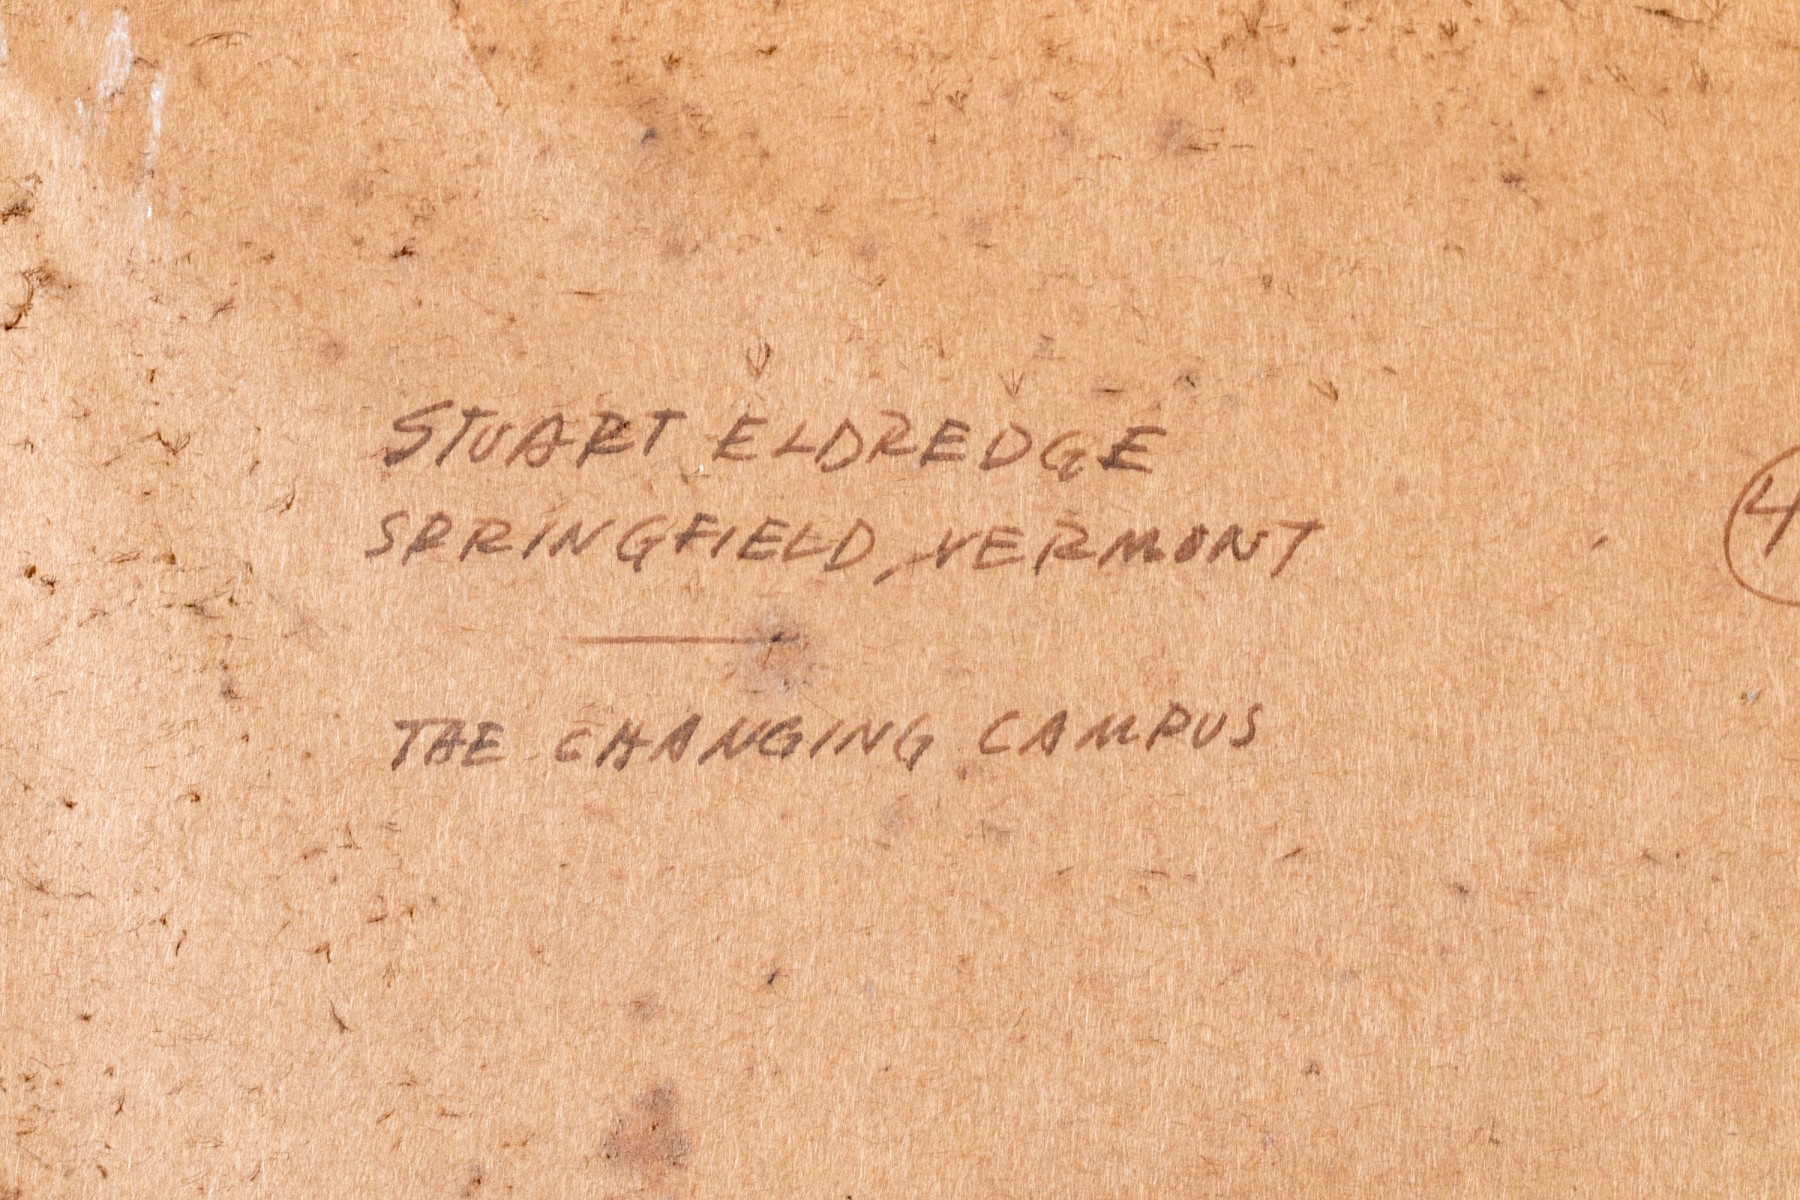 STUART ELDREDGE
SPRINGFIELD, VERMONT
THE CHANGING CAMPUS
4